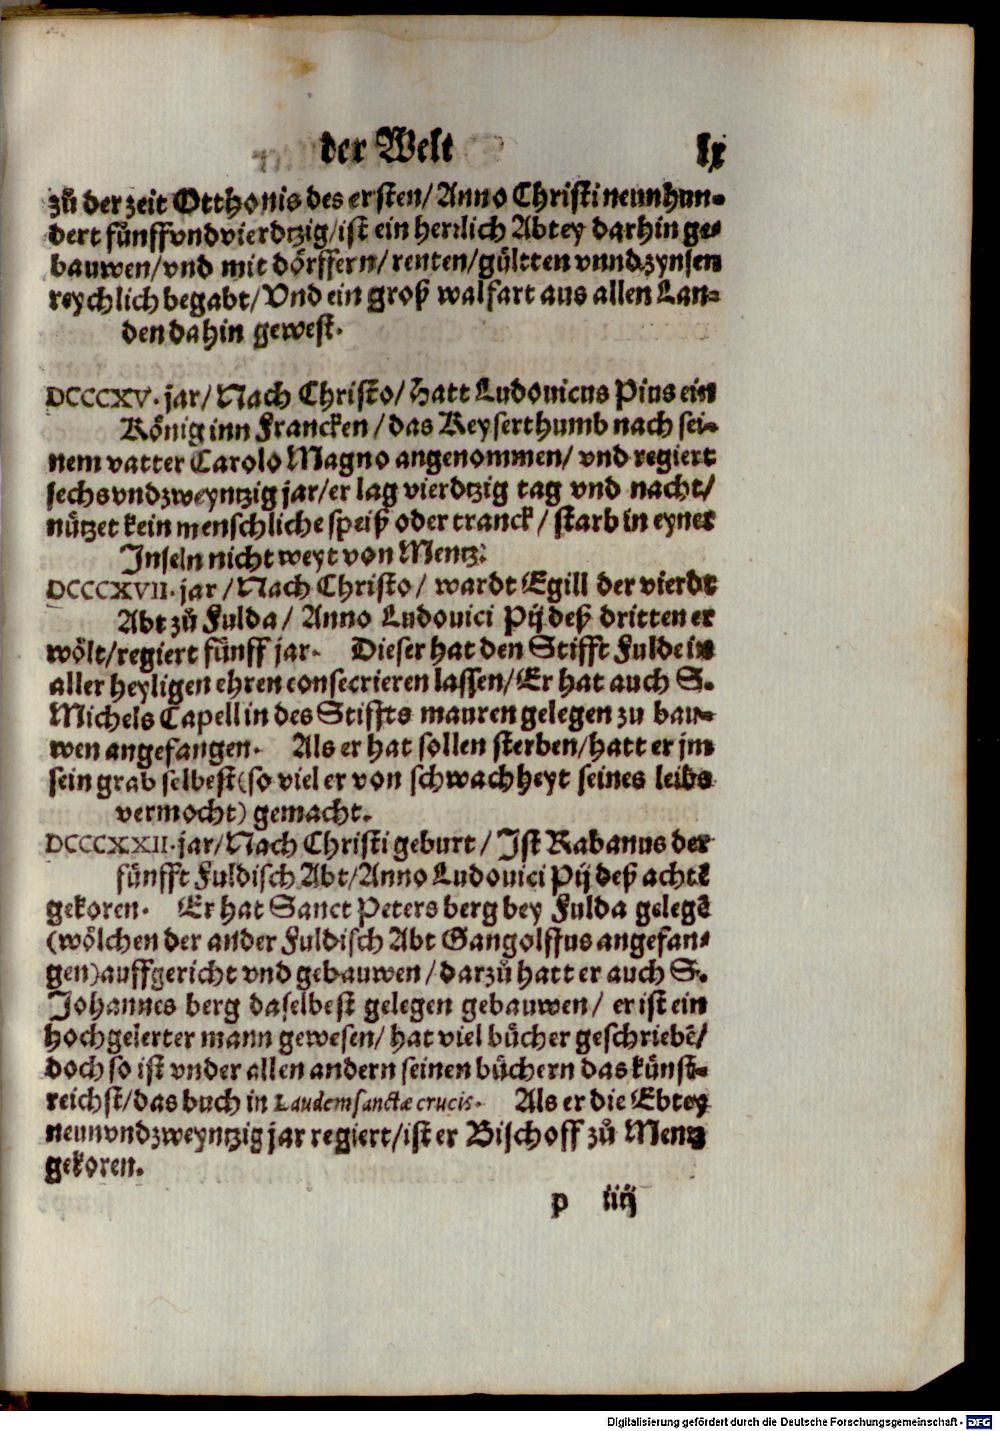 der Welt lx
zů der zeit Otthonis des ersten/ Anno Christi neunhun-
dert fünffvndvierdtzig/ ist ein herrlich Abtey darhin ge-
bauwen/ vnd mit dörffern/ renten/ gültten vnnd zynsen
reychlich begabt/ Vnd ein groß walfart aus allen Lan-
den dahin gewest.
DCCCXV. jar/ Nach Christo/ Hatt Ludouicus Pius ein
König inn Francken/ das Keyserthumb nach sei-
nem vatter Carolo Magno angenommen/ vnd regiert
sechsvndzweyntzig jar/ er lag vierdtzig tag vnd nacht/
nützet kein menschliche speiß oder tranck/ starb in eyner
Inseln nicht weyt von Mentz.
DCCCXVII. jar/ Nach Christo/ wardt Egill der vierdt
Abt zů Fulda/ Anno Ludouici Pij deß dritten er
wölt/ regiert fünff jar. Dieser hat den Stifft Fulde in
aller heyligen ehren consecrieren lassen/ Er hat auch S.
Michels Capell in des Stiffts mauren gelegen zu bau-
wen angefangen. Als er hat sollen sterben/ hatt er jm
sein grab selbest (so viel er von schwachheyt seines leibs
vermocht) gemacht.
DCCCXXII. jar/ Nach Christi geburt/ Ist Rabanus der
fünfft Fuldisch Abt/ Anno Ludouici Pij deß achtē
gekoren. Er hat Sanct Peters berg bey Fulda gelegē
(wölchen der ander Fuldisch Abt Gangolffus angefan-
gen) auffgericht vnd gebauwen/ darzů hatt er auch S.
Johannes berg daselbest gelegen gebauwen/ er ist ein
hochgelerter mann gewesen/ hat viel bücher geschriebē/
doch so ist vnder allen andern seinen büchern das künst-
reichst/ das buch in Laudem sanctæ crucis. Als er die Ebtey
neunvndzweyntzig jar regiert/ ist er Bischoff zů Mentz
gekoren.
p iiij
Digitalisierung gefördert durch die Deutsche Forschungsgemeinschaft - DFG